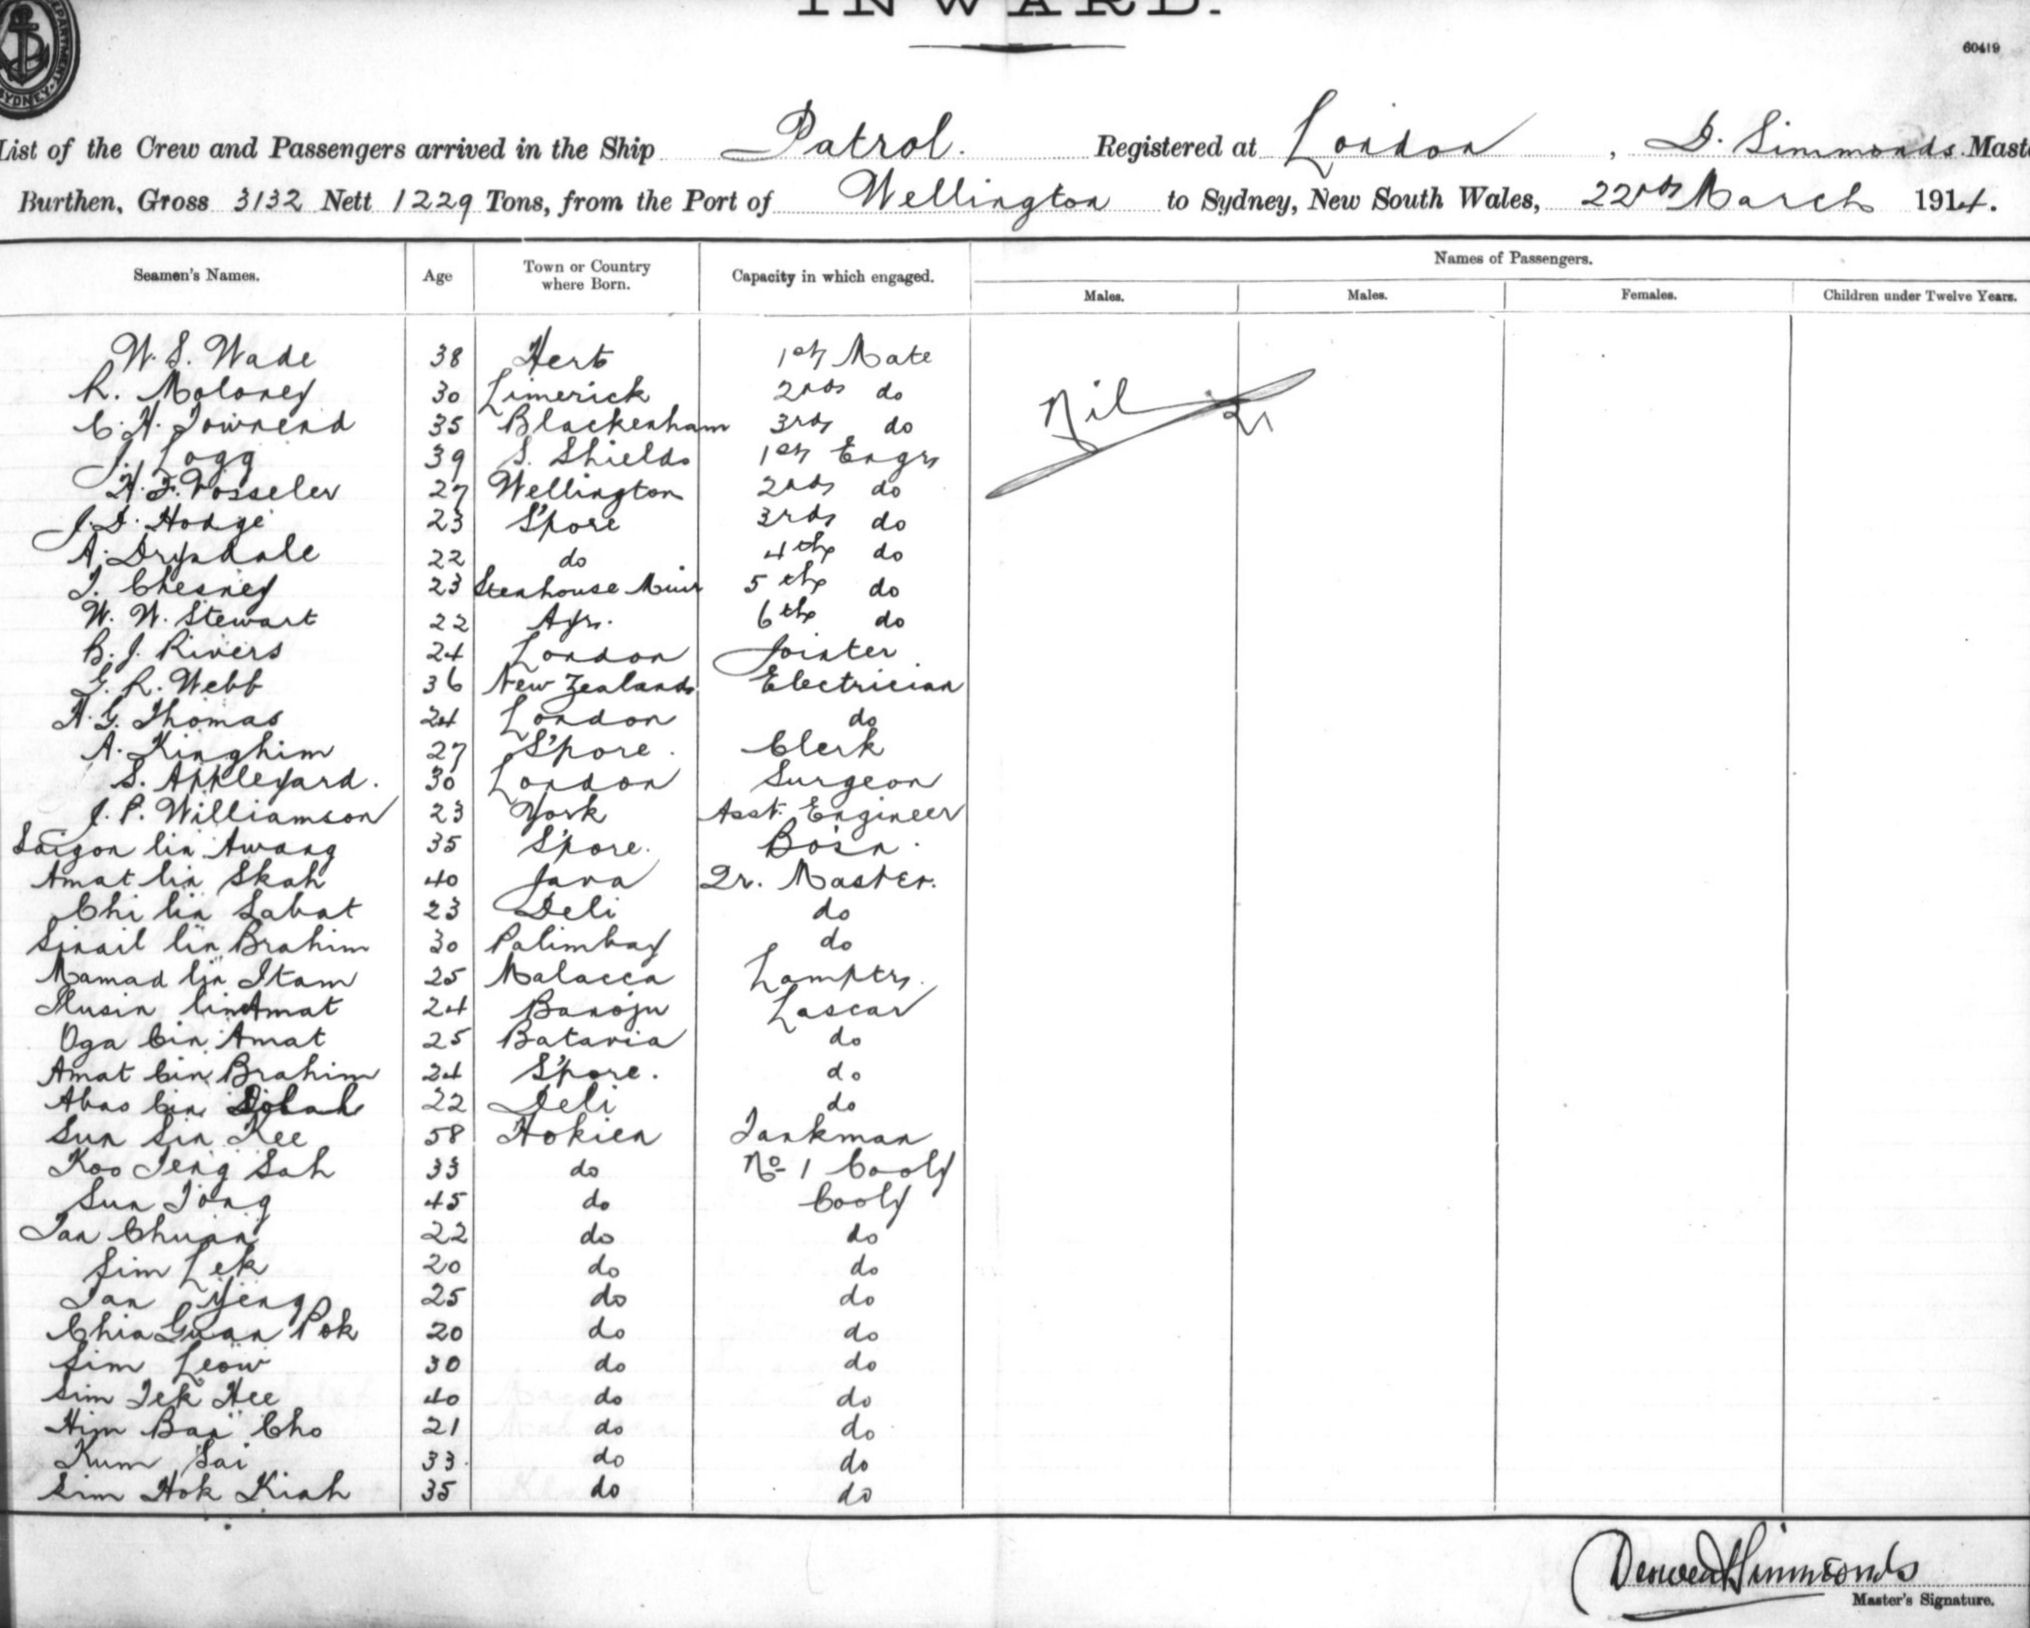 INWARD.
60419
DEPARTMENT
SYDNEY
List of the Crew and Passengers arrived in the Ship Patrol. Registered at London, D. Simmonds Mast
Burthen, Gross 3132 Nett 1229 Tons, from the Port of Wellington to Sydney, New South Wales, 22nd March 1914.
Names of Passengers.
Seamen's Names. Age Town or Country where Born. Capacity in which engaged. Males. Males. Females. Children under Twelve Years.
W. S. Wade 38 Herts 1st Mate
R. Moloney 30 Limerick 2nd do Nil
C. H. Townend 35 Blackenham 3rd do
J. Logg 39 S. Shields 1st Engr
H. F. Vosseler 27 Wellington 2nd do
J. D. Hodge 23 S'pore 3rd do
A. Drysdale 22 do 4th do
T. Chesney 23 Stenhouse Muir 5th do
W. W. Stewart 22 Ayr. 6th do
B. J. Rivers 24 London Jointer
G. R. Webb 36 New Zealand Electrician
H. G. Thomas 24 London do
A. Kinghim 27 S'pore. Clerk
S. Appleyard. 30 London Surgeon
J. P. Williamson 23 York Asst. Engineer
Saigon bin Awang 35 S'pore. Bos'n.
Amat bin Skah 40 Java Qr. Master.
Chi bin Sabat 23 Deli do
Sinail bin Brahim 30 Palimbay do
Mamad bin Itam 25 Malacca Lamptr.
Musin bin Amat 24 Lascar
Oga bin Amat 25 Batavia do
Amat bin Brahim 24 S'pore. do
Abas bin 22 Deli do
Sun Sin Kee 58 Hokien Tankman
Koo Teng Sah 33 do No 1 Cooly
Sun Tong 45 do Cooly
Tan Chuan 22 do do
Sim Lek 20 do do
Tan Yeng 25 do do
Chia Guan Pok 20 do do
Sim Leow 30 do do
Sim Tek Hee 40 do do
Him Ban Cho 21 do do
Kum Sai 33. do do
Sim Hok Kiah 35 do do
Simmonds
Master's Signature.